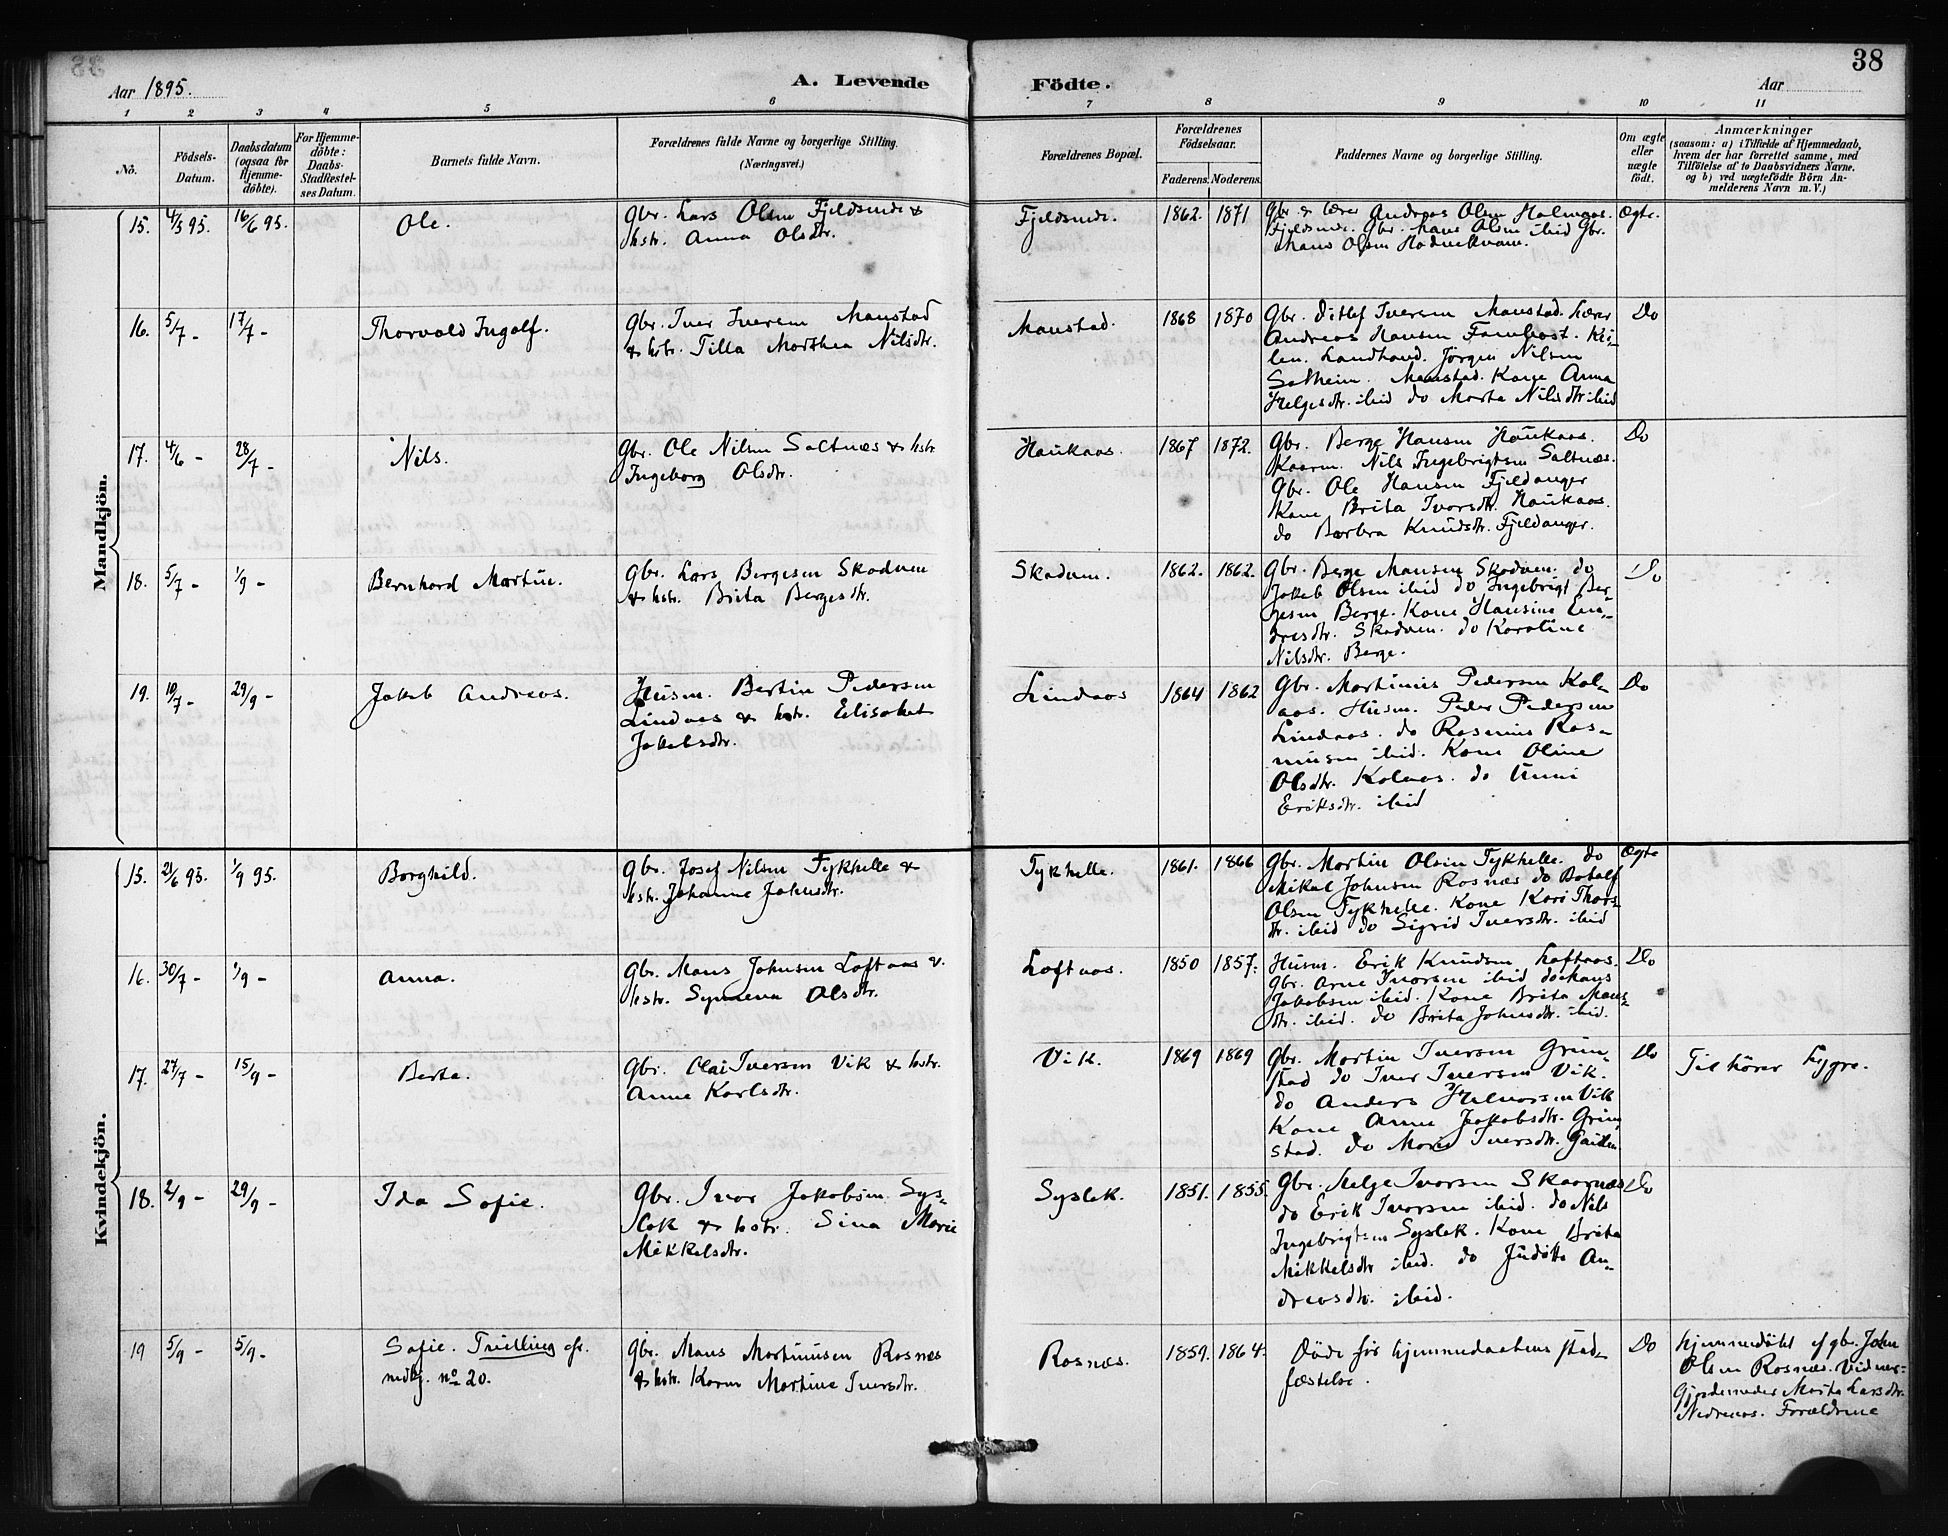 38
Aar 1895. A. Levende Födte. Aar
1 2 3 4 5 6 7 8 9 10 11
No.
Födsels-
Datum.
Daabsdatum
(ogsaa for
Hjemme-
döbte).
For Hjemme-
döbte:
Daabs-
Stadfæstel-
ses Datum.
Barnets fulde Navn.
Forældrenes fulde Navne og borgerlige Stilling.
(Næringsvei.)
Forældrenes Bopæl.
Forældrenes
Födselsaar.
Faderens. Moderens.
Faddernes Navne og borgerlige Stilling.
Om ægte
eller
uægte
födt.
Anmærkninger
(saasom: a) i Tilfælde af Hjemmedaab,
hvem der har forrettet samme, med
Tilföielse af to Daabsvidners Navne.
og b) ved uægtefödte Börn An-
melderens Navn m.V.)
Mandkjön.
15. 4/5 95. 16/6 95.
Ole.
Gbr. Lars Olsen Fjeldsende &
hstr. Anna Olsdtr.
Fjeldsende.
1862. 1871
Gbr. & lærer Andreas Olsen Holmaas.
Fjeldsende. Gbr. Mans Olsen ibid Gbr.
Mans Olsen
Ægte.
16. 5/7 - 17/7 -
Thorvald Ingolf.
Gbr. Iver Iversen Manstad
& hstr. Tilla Marthea Nilsdtr.
Manstad.
1868 1870
Gbr. Ditlef Iversen Manstad. Lærer
Andreas Hansen
Landhand. Jörgen Nilsen
Solheim. Manstad. Kone Anna
Helgesdtr. ibid do Marta Nilsdtr ibid
Do
17. 4/6 - 28/7 -
Nils.
Gbr. Ole Nilsen Saltnæs & hstr
Ingeborg Olsdtr.
Haukaas.
1867 1872.
Gbr. Berge Hansen Haukaas.
Kaarm. Nils Ingebrigtsen Saltnæs.
Gbr. Ole Hansen Fjeldanger
Kone Brita Iversdtr. Haukaas.
do Barbra Knudsdtr. Fjeldanger.
Do
18. 5/7 - 1/9 -
Bernhard Martin.
Gbr. Lars Bergesen Skodven
& hstr. Brita Bergesdtr.
Skodven.
1862. 1862.
Gbr. Berge Mansen Skodven. do
Jakob Olsen ibid do Ingebrigt Ber-
gesen Berge. Kone Hansine En-
dresdtr. Skodven. do Karoline
Nilsdtr. Berge.
Do
19. 10/7 - 29/9 -
Jakob Andreas.
Husm. Bertin Pedersen
Lindaas & hstr. Elisabet
Jakobsdtr.
Lindaas
1864 1862
Gbr. Martinus Pedersen Kol-
aas. Husm. Peder Pedersen
Lindaas. do Rasmus Ras-
musen ibid. Kone Oline
Olsdtr. Kolaas. do Anni
Eriksdtr. ibid
Do
Kvindekjön.
15. 21/6 95. 1/9 95.
Borghild.
Gbr. Josef Nilsen Tykhelle &
hstr. Johanne Johnsdtr.
Tykhelle.
1861. 1866
Gbr. Martin Olsen Tykhelle. do
Mikal Johnsen Rosnæs do Botolf
Olsen Tykhelle. Kone Kari Thors-
dtr. ibid do Sigrid Iversdtr. ibid
Ægte
16. 30/7 - 1/9 -
Anna.
Gbr. Mans Johnsen Loftaas &
hstr. Synneva Olsdtr.
Loftaas.
1850 1857.
Husm. Erik Knudsen Loftaas.
Gbr. Arne Iversen ibid do Mans
Jakobsen ibid. Kone Brita Mans-
dtr. ibid. do Brita Johnsdtr. ibid.
Do
17. 27/7 - 15/9 -
Berta.
Gbr. Olai Iversen Vik & hstr.
Anne Karlsdtr.
Vik.
1869 1869
Gbr. Martin Iversen Grim-
stad do Iver Iversen Vik.
do Anders Halvorsen Vik
Kone Anne Jakobsdtr. Grim-
stad. do Marie Iversdtr.
Do
Tilhörer Lygre.
18. 2/9 - 29/9 -
Ida Sofie.
Gbr. Ivar Jakobsen Sys-
lak & hstr. Sina Marie
Mikkelsdtr.
Syslek.
1851. 1855.
Gbr. Helge Iversen Skaarnæs
do Erik Iversen ibid. do Nils
Ingebrigtsen Syslek. Kone Brita
Mikkelsdtr ibid. do Juditte An-
dreasdtr. ibid.
Do
19 5/9 - 5/9 -
Sofie. Tvilling cfr.
nedenf. no 20.
Gbr. Mans Martinusen Rosnæs
& hstr. Karen Martine Iversdtr.
Rosnæs.
1859. 1864.
Döde för hjemmedaabens stad-
fæstelse.
Do
Hjemmedöbt af gbr. John
Olsen Rosnæs. Vidner:
Gjordemoder Marta Larsdtr.
Nedreaas. Forældrene